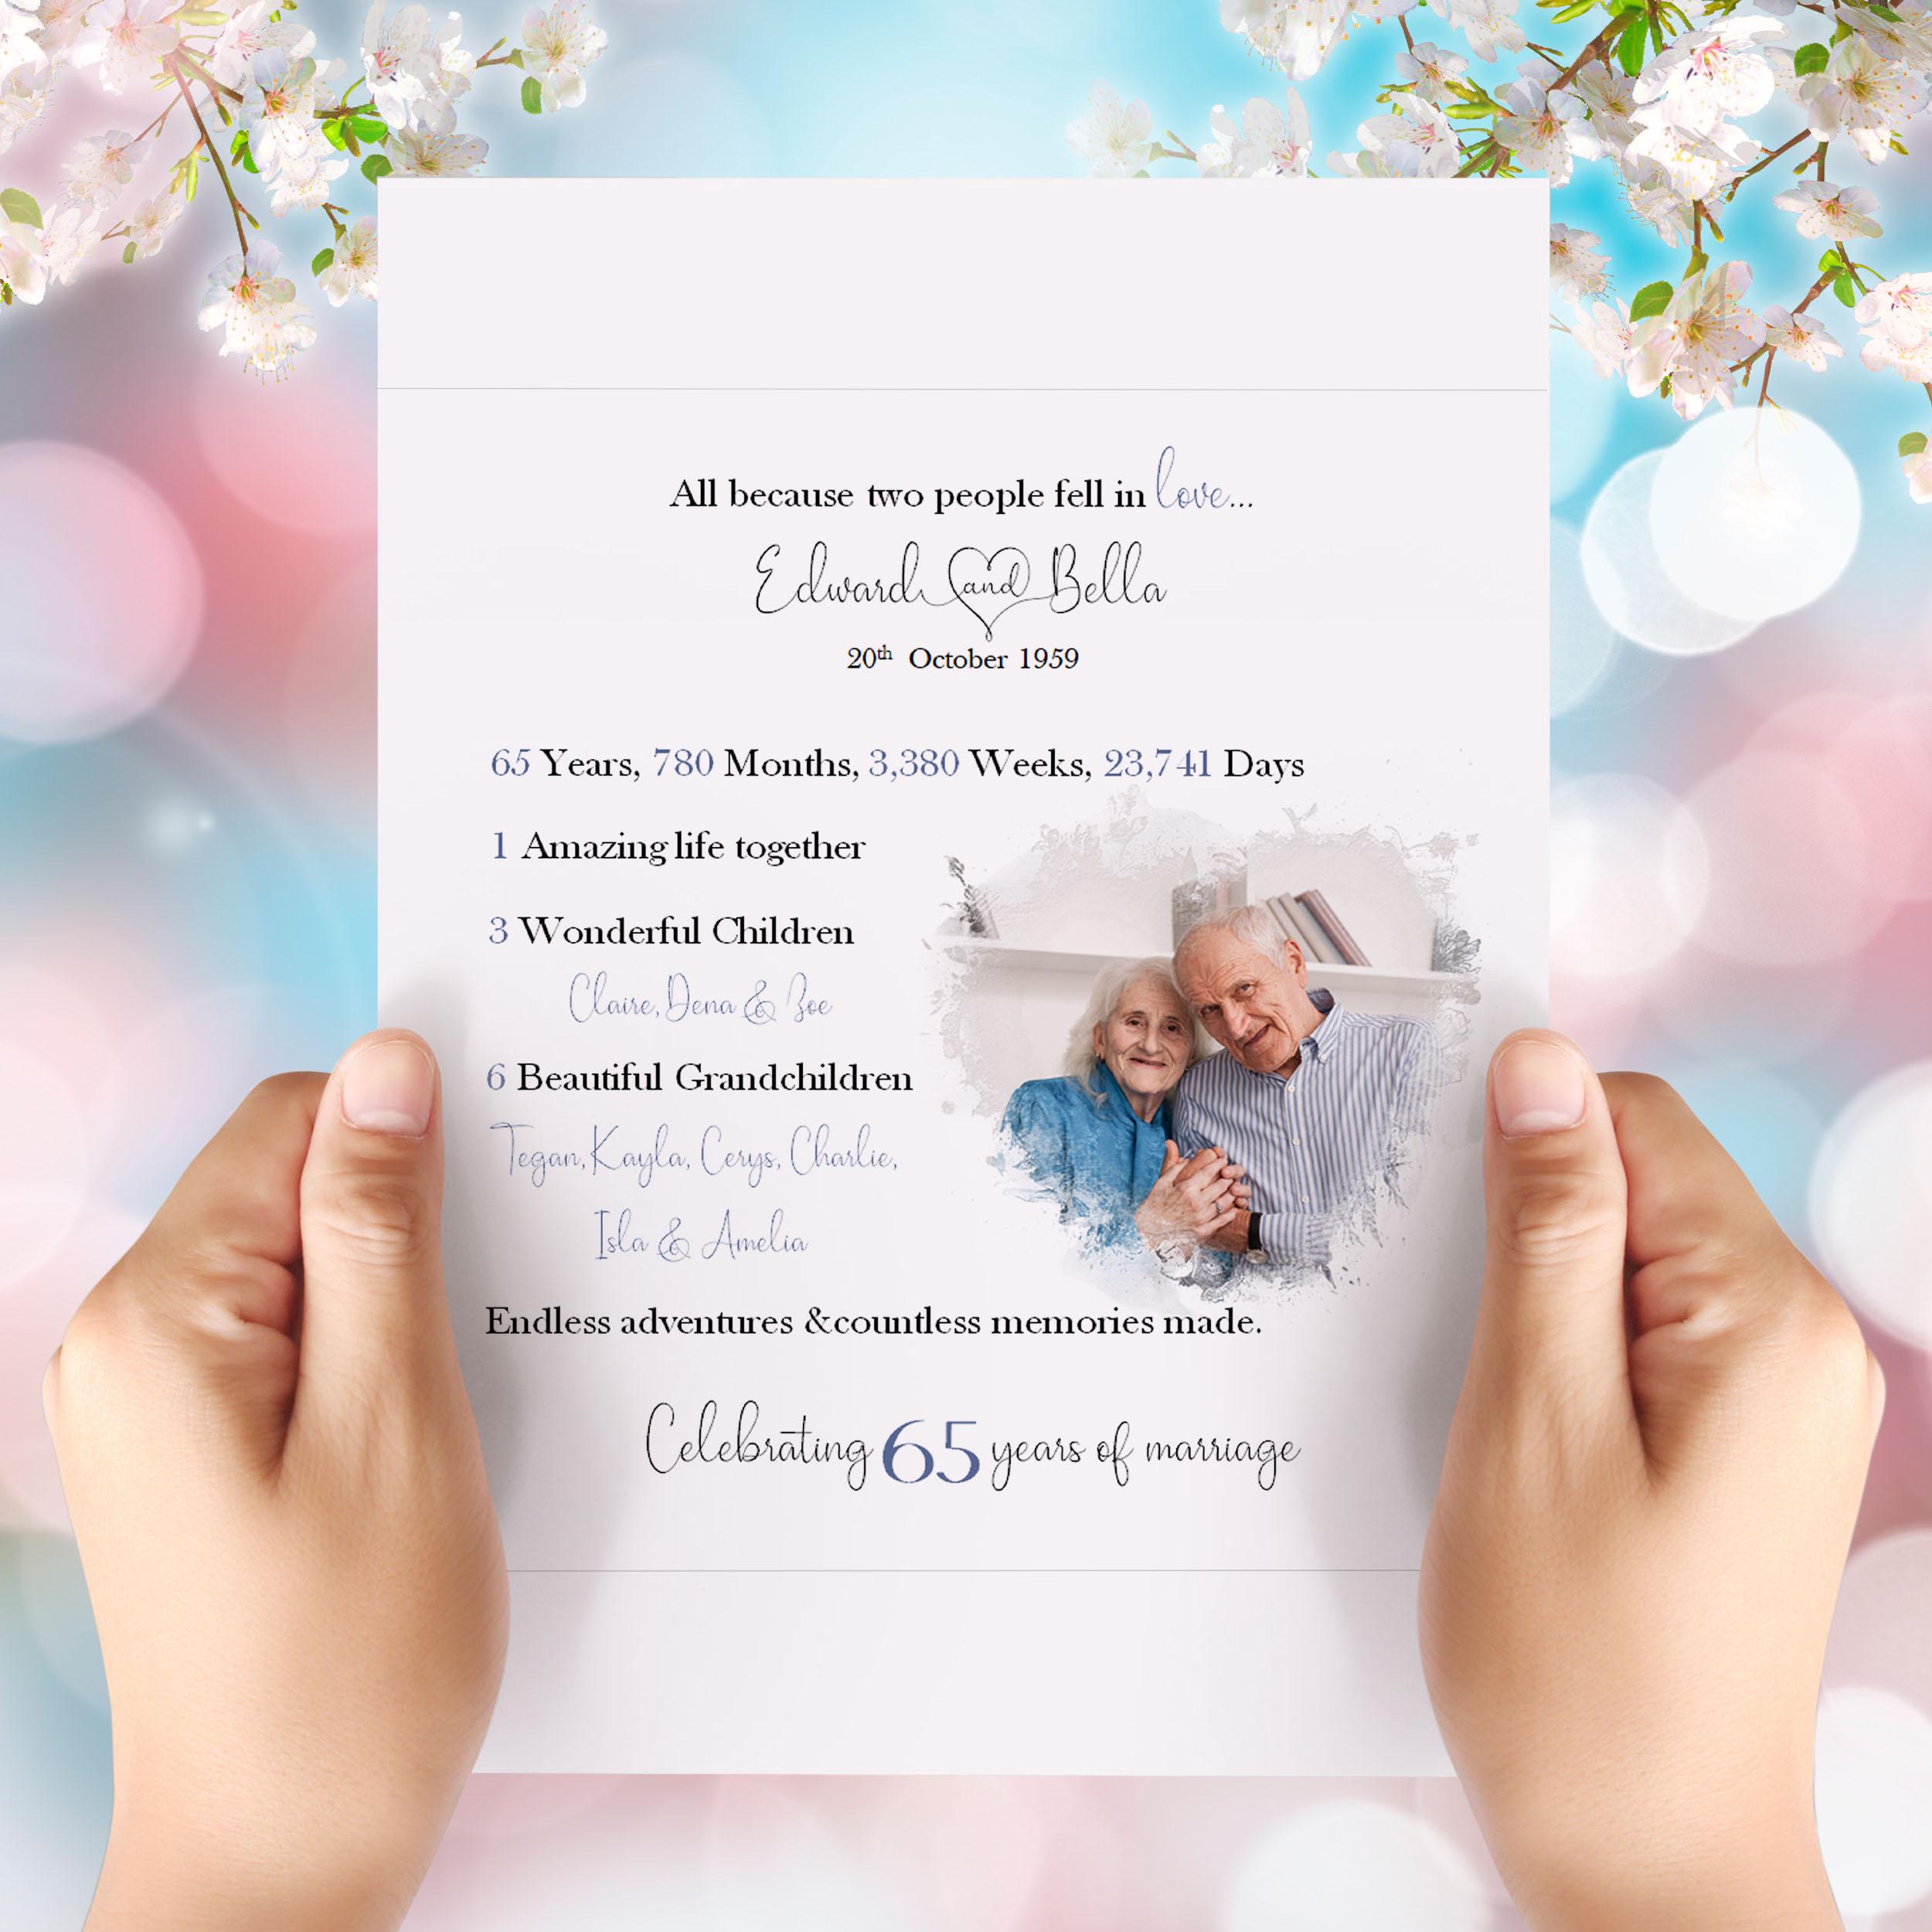 All because two people fell in love...
Edward and Bella
20th October 1959
65 Years, 780 Months, 3,380 Weeks, 23,741 Days
1 Amazing life together
3 Wonderful Children
Claire, Dena & Zoe
6 Beautiful Grandchildren
Tegan, Kayla, Cerys, Charlie,
Isla & Amelia
Endless adventures &countless memories made.
Celebrating 65 years of marriage